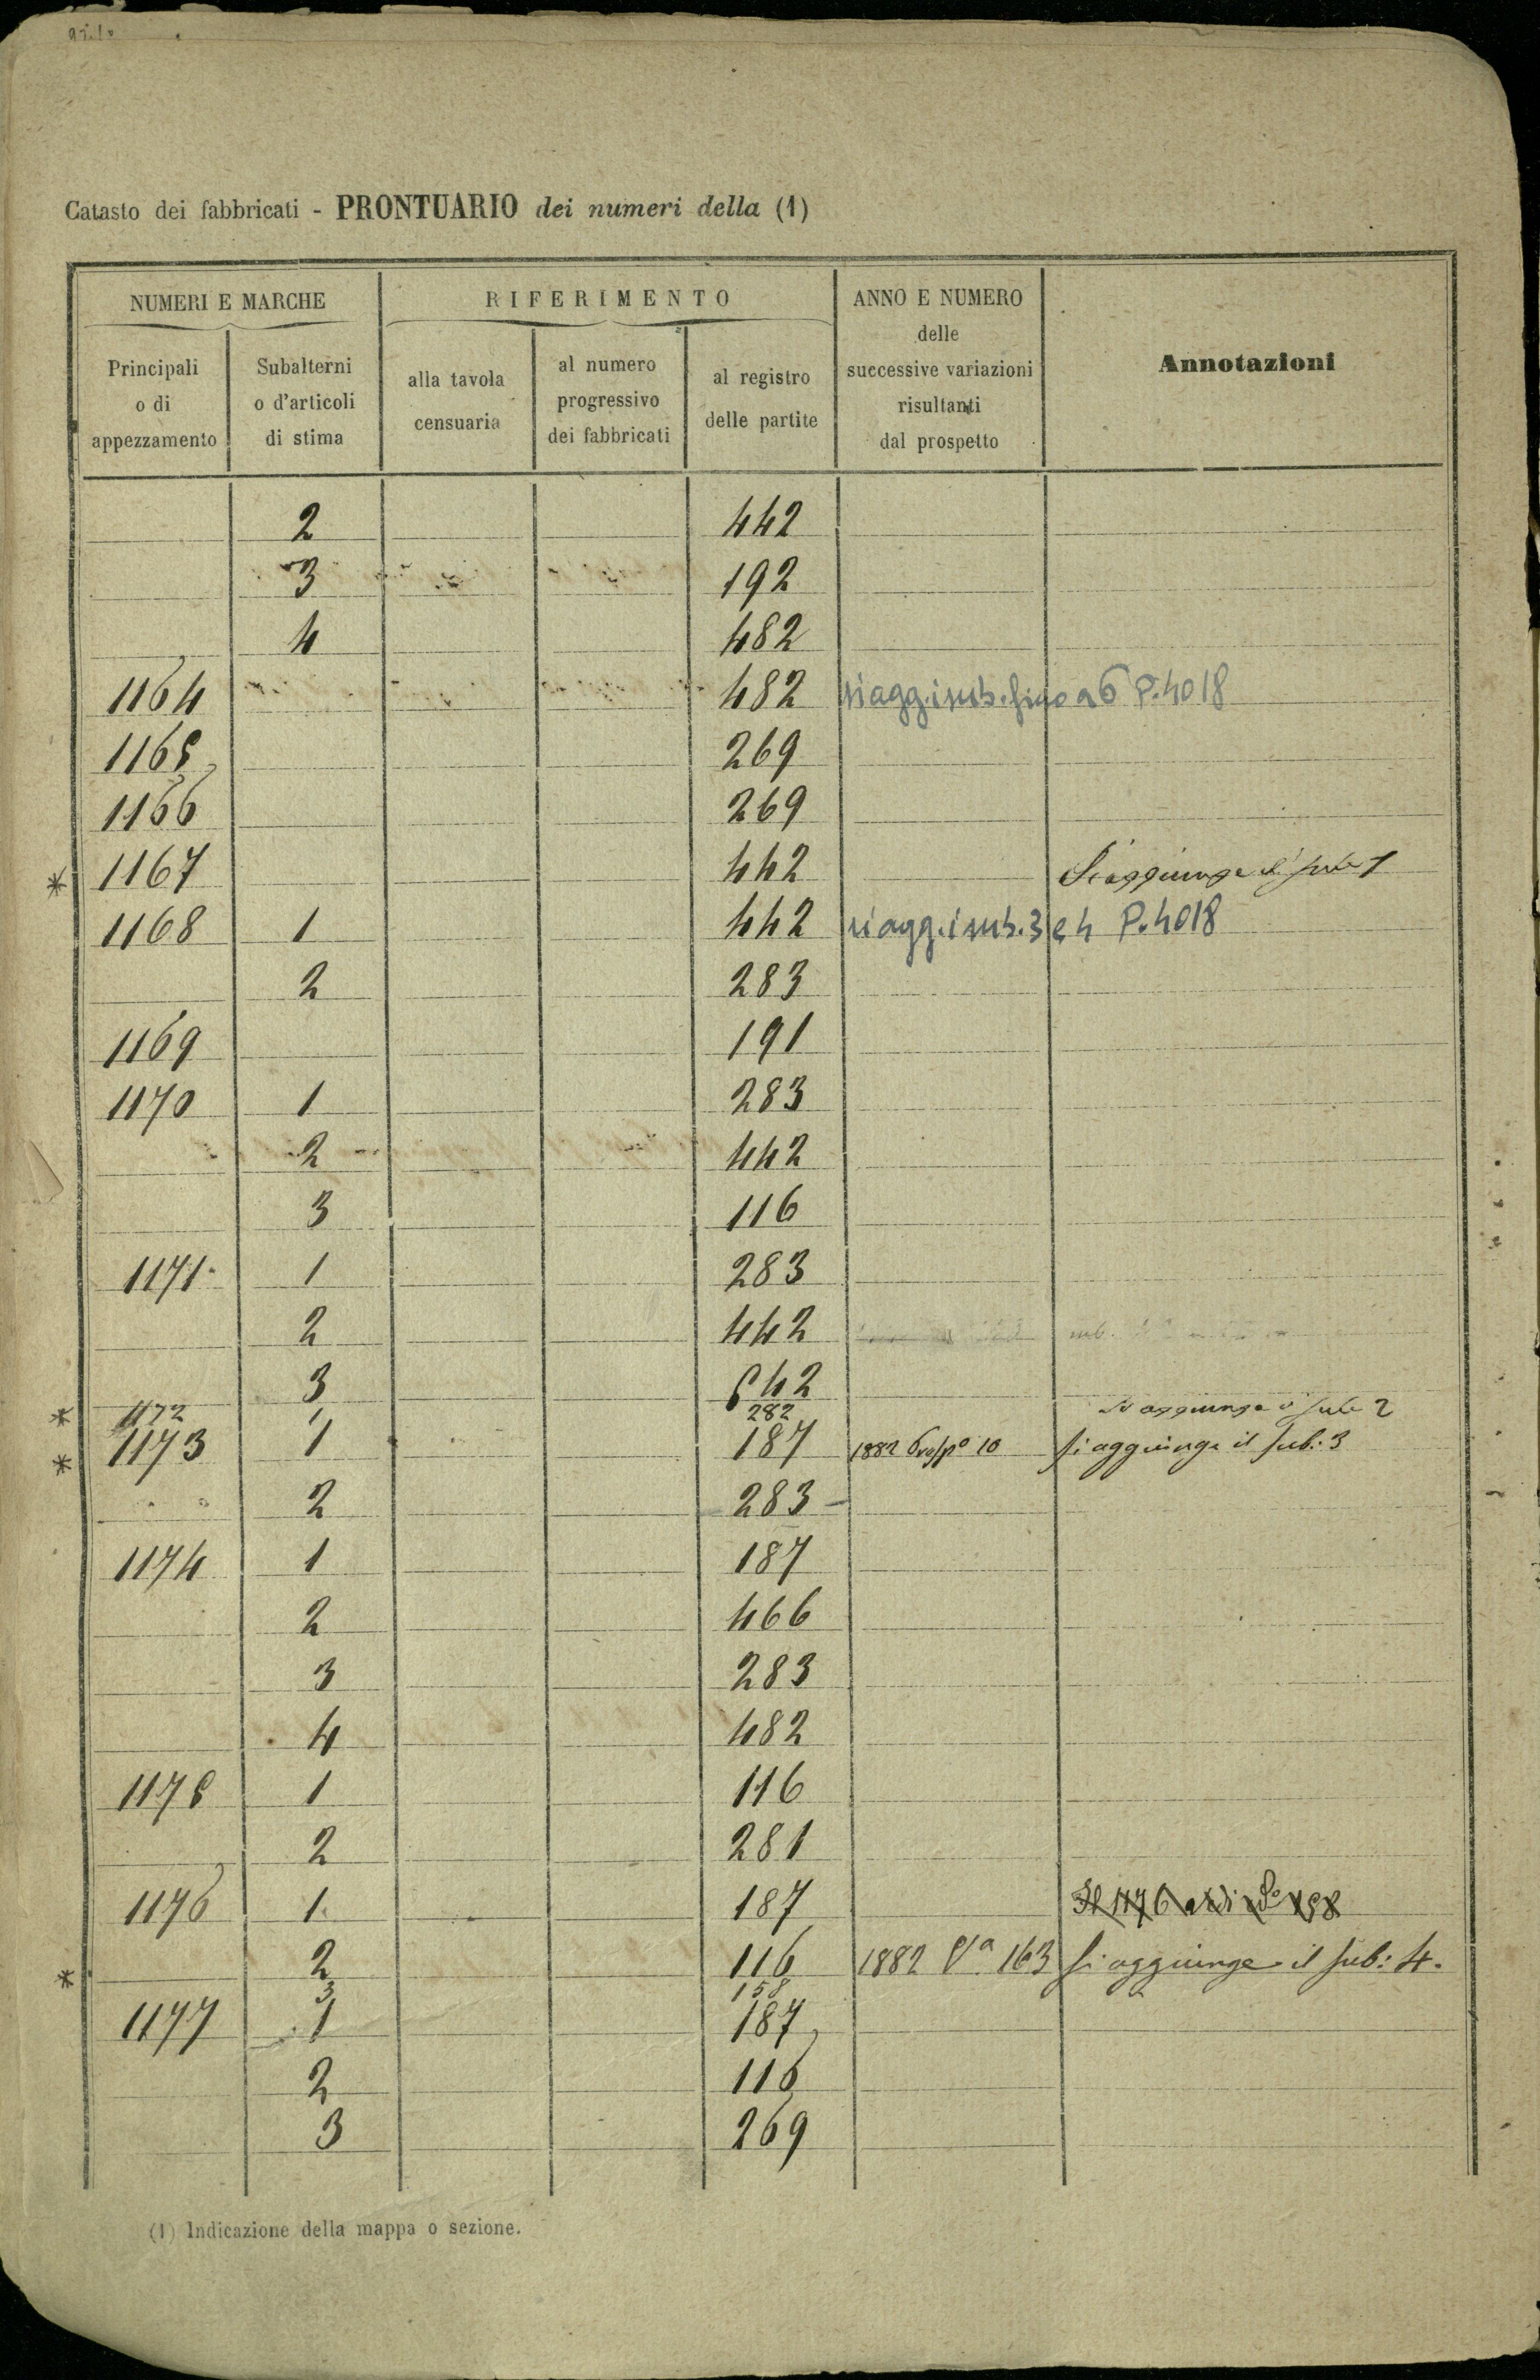 Catasto dei fabbricati - PRONTUARIO dei numeri della (1)
NUMERI E MARCHE
RIFERIMENTO
ANNO E NUMERO
delle
successive variazioni
risultanti
dal prospetto
Annotazioni
Principali
o di
appezzamento
Subalterni
o d'articoli
di stima
alla tavola
censuaria
al numero
progressivo
dei fabbricati
al registro
delle partite
2 442
3 192
4 482
1164 482 si agg. i sub. fino a 6 P. 4018
1165 269
1166 269
* 1167 442 Si aggiunge il sub 1
1168 1 442 si agg. i sub. 3 e 4 P. 4018
2 283
1169 191
1170 1 283
2 442
3 116
1171 1 283
2 442 sub.
3 642
* 1172 282 Si aggiunge il sub 2
* 1173 1 187 1882 Prosp° 10 Si aggiunge il sub: 3
2 283
1174 1 187
2 466
3 283
4 482
1175 1 116
2 281
1176 1 187 Il 1176 158
* 2 116 1882 Va 163 Si aggiunge il sub: 4.
3 158
1177 1 187
2 116
3 269
(1) Indicazione della mappa o sezione.